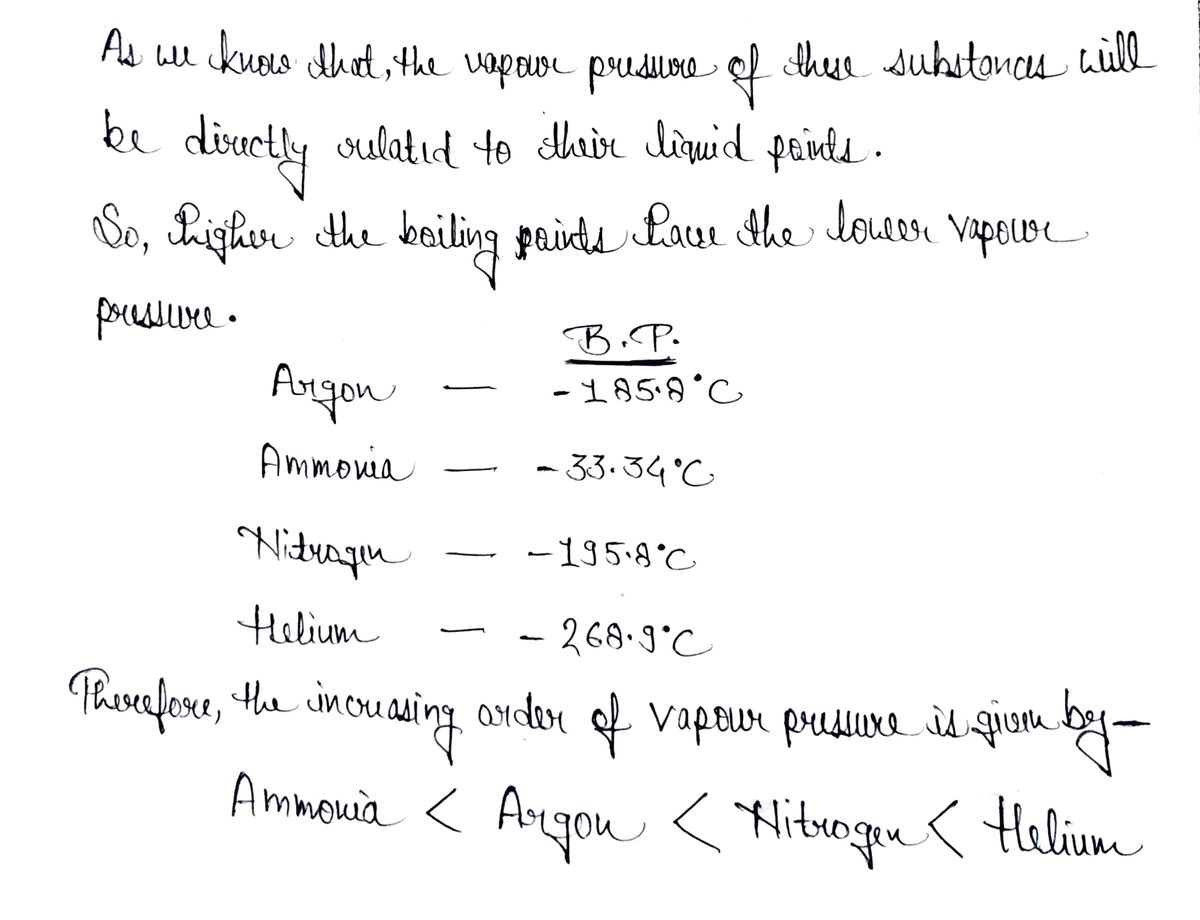 As we know that, the vapour pressure of these substances will
be directly related to their liquid points.
So, higher the boiling points have the lower vapour
pressure.
B.P.
Argon — -185.8°C
Ammonia — -33.34°C
Nitrogen — -195.8°C
Helium — -268.9°C
Therefore, the increasing order of vapour pressure is given by—
Ammonia < Argon < Nitrogen < Helium